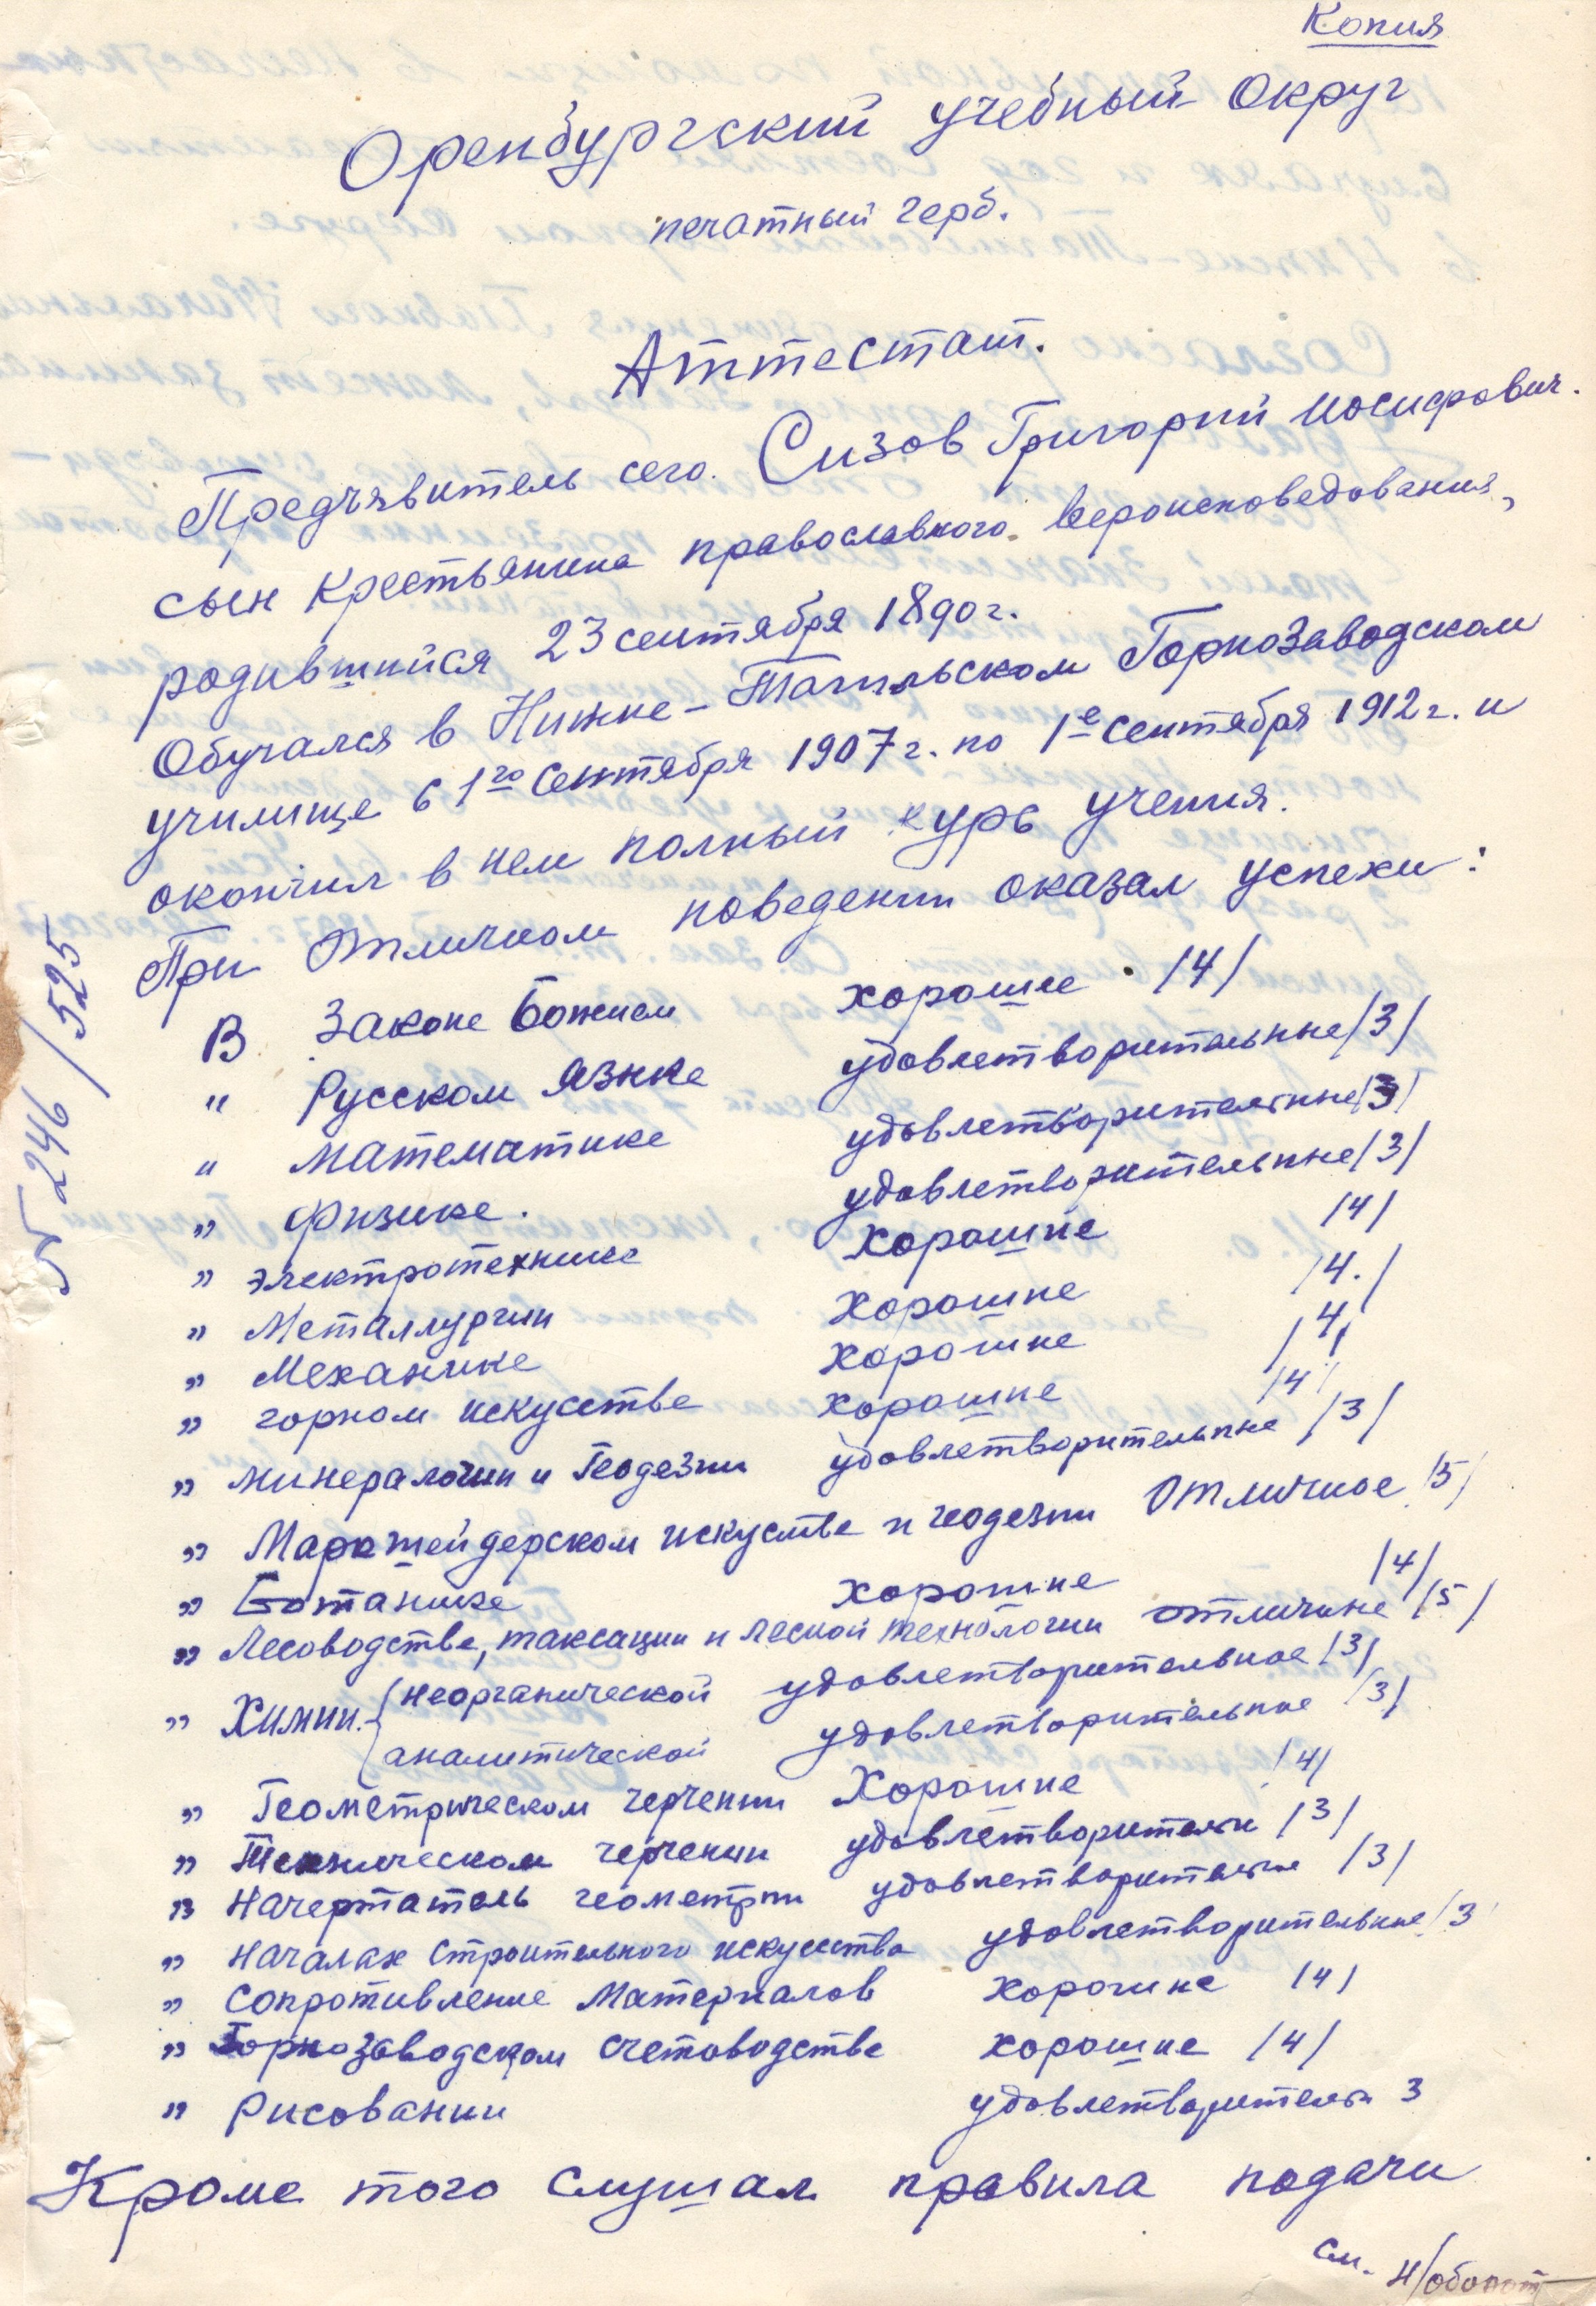 Копия
Оренбургский учебный округ
печатный герб.
Аттестат.
Предъявитель сего. Сизов Григорий Иосифович.
сын Крестьянина православного вероисповедования,
родившийся 23 сентября 1890 г.
Обучался в Нижне-Тагильском Горнозаводском
училище с 1го Сентября 1907 г. по 1е сентября 1912 г. и
окончил в нем полный курс учения.
При Отличном поведении оказал успехи:
В Законе Божием хорошие /4/
" Русском языке удовлетворительные /3/
" Математике удовлетворительные /3/
" Физике. удовлетворительные /3/
" Электротехнике хорошие /4/
" Металлургии хорошие /4./
" Механике хорошие /4/
" горном искусстве хорошие /4/
" минералогии и Геодезии удовлетворительные /3/
" Маркшейдерском искусстве и геодезии Отличное /5/
" Ботанике хорошие /4/
" Лесоводстве, таксации и лесной технологии отличные /5/
" Химии. { неорганической удовлетворительное /3/
аналитической удовлетворительное /3/
" Геометрическом черчении Хорошие /4/
" Техническом черчении удовлетворительн /3/
" Начертатель геометрии удовлетворительные /3/
" Началах Строительного искусства удовлетворительные /3/
" Сопротивление Материалов хорошие /4/
" Горнозаводском счетоводстве хорошие /4/
" Рисовании удовлетворительн 3
Кроме того Слушал правила подачи
см. н/оборот
№ 246/525